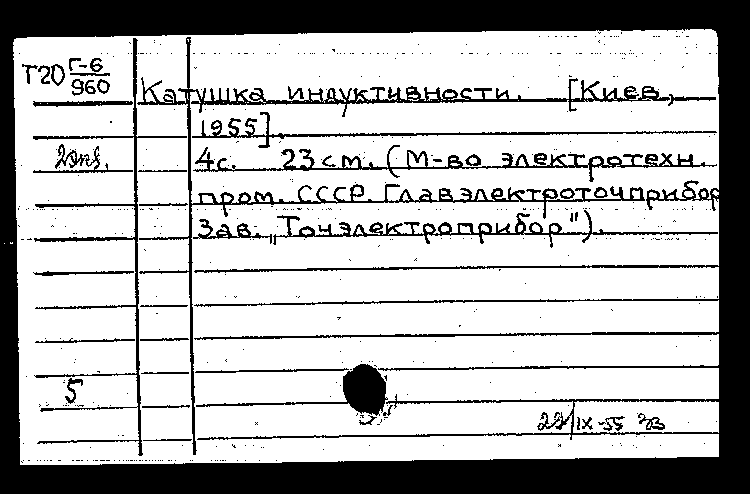 Т20 Г-6
960
Катушка индуктивности. [Киев,
1955].
2 экз. 4с. 23 см. (М-во электротехн.
пром. СССР. Главэлектроточприбор
Зав. „Точэлектроприбор").
5
22/IX-55